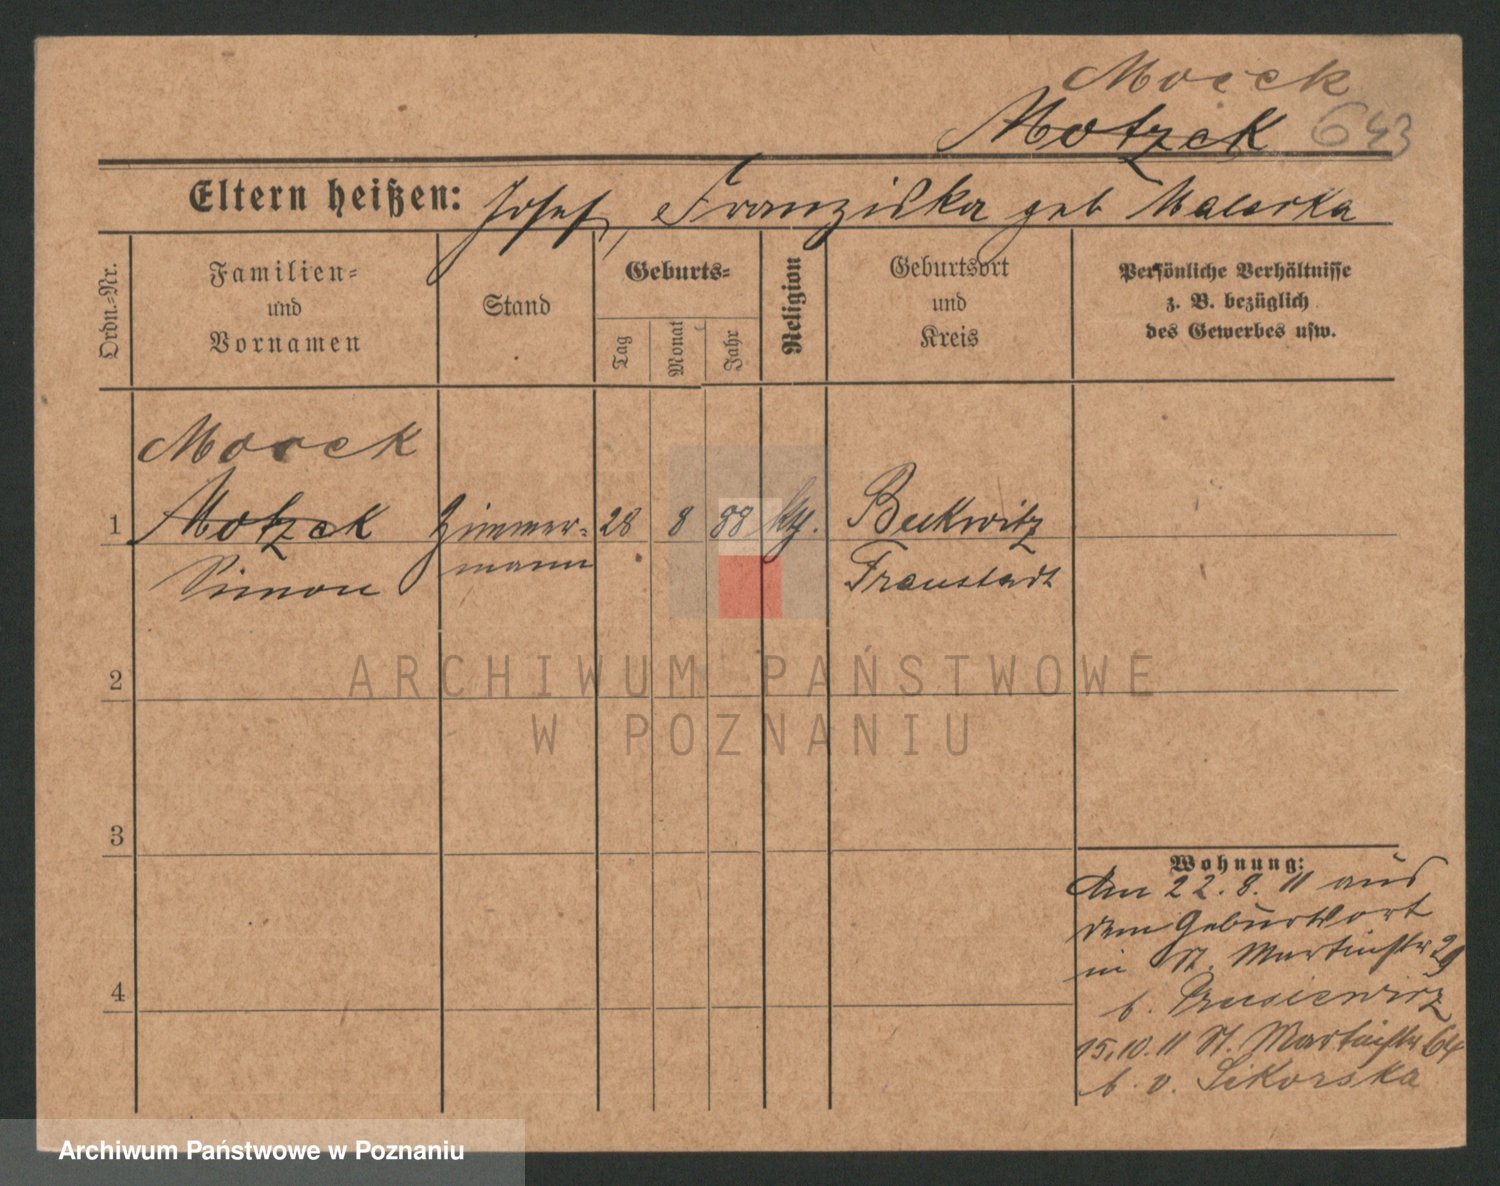 Mocek
Motzek 643
Eltern heißen: Josef, Franziska geb Malerka
Ordn.-Nr.
Familien-
und
Vornamen
Stand
Geburts-
Tag
Monat
Jahr
Religion
Geburtsort
und
Kreis
Persönliche Verhältnisse
z. B. bezüglich
des Gewerbes usw.
Mocek
1 Motzek Zimmer- 28 8 88 Beckwitz
Simon mann Fraustadt
2
ARCHIWUM PAŃSTWOWE
W POZNANIU
3
4
Wohnung:
Am 22. 8. 11 aus
dem Geburtsort
in St. Martinstr 29
b.
15.10.11 St. Martinstr 64
b. v. Sikorska
Archiwum Państwowe w Poznaniu